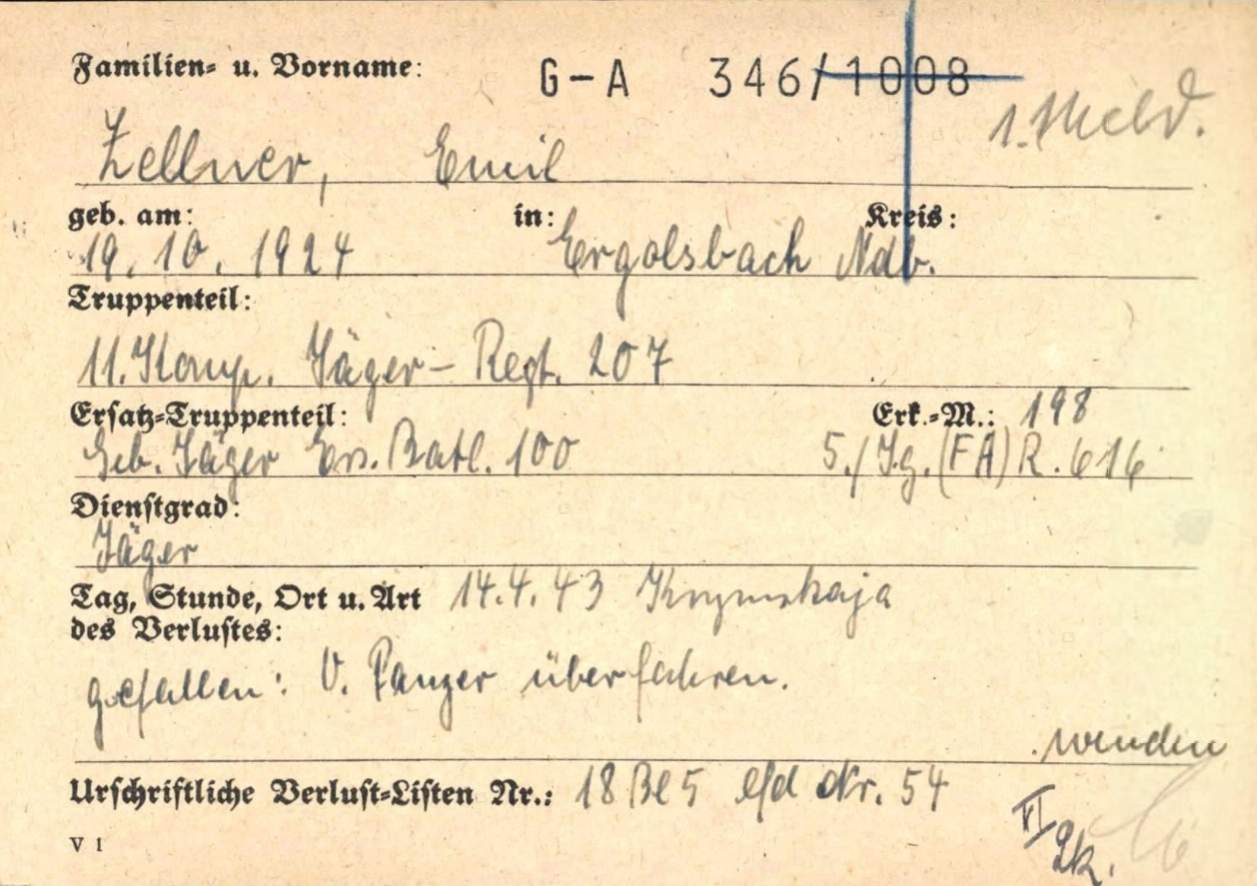 Familien- u. Vorname: G-A 346/1008
1. Meld.
Zellner, Emil
geb. am: in: Kreis:
19. 10. 1924 Ergolsbach Ndb.
Truppenteil:
11. Komp. Jäger-Regt. 207
Ersatz-Truppenteil: Erk.-M.: 198
Geb. Jäger Ers. Batl. 100 5./Jg.(FA)R. 616
Dienstgrad:
Jäger
Tag, Stunde, Ort u. Art 14.4.43 Krymskaja
des Verlustes:
gefallen: V. Panzer überfahren.
wenden
Urschriftliche Verlust-Listen Nr.: 18 Bl 5 lfd Nr. 54
VI
V 1